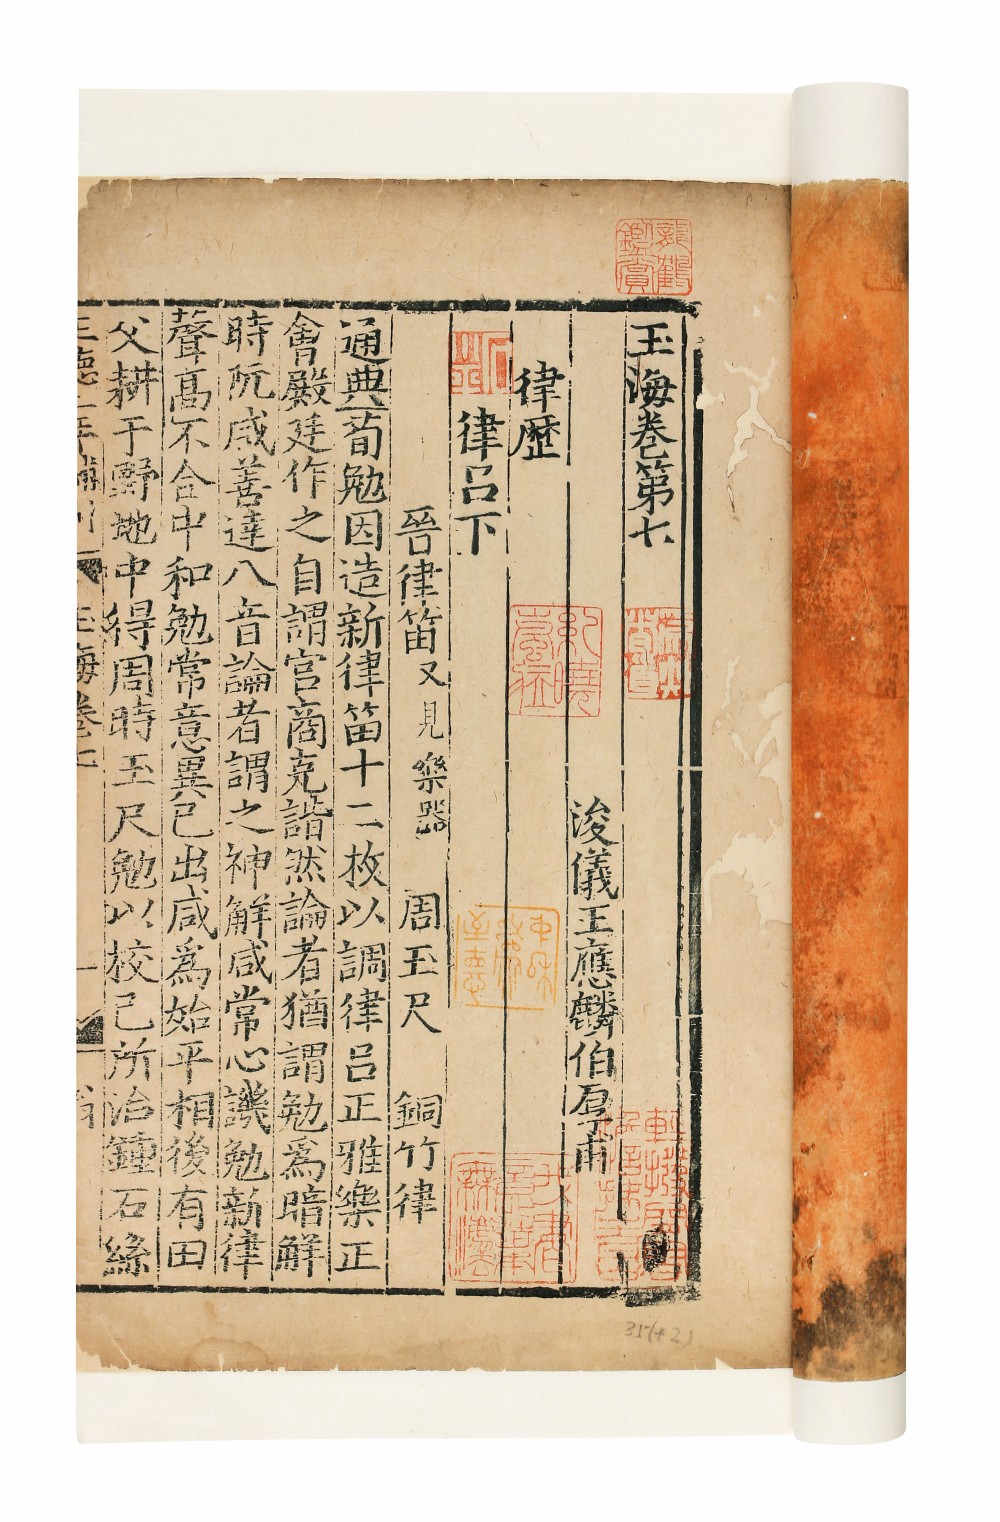 玉海卷第七
浚儀王應麟伯厚甫
律歷
律呂下
晉律笛又見樂器 周玉尺 銅竹律
通典荀勉因造新律笛十二枚以調律呂正雅樂正
會殿廷作之自謂宮商克諧然論者猶謂勉為暗解
時阮咸善達八音論者謂之神解咸常心譏勉新律
聲高不合中和勉常意異已出咸為始平相後有田
父耕于野地中得周時玉尺勉以校己所治鍾石絲
玉海卷七
龍鶴鑑賞
35(+2)